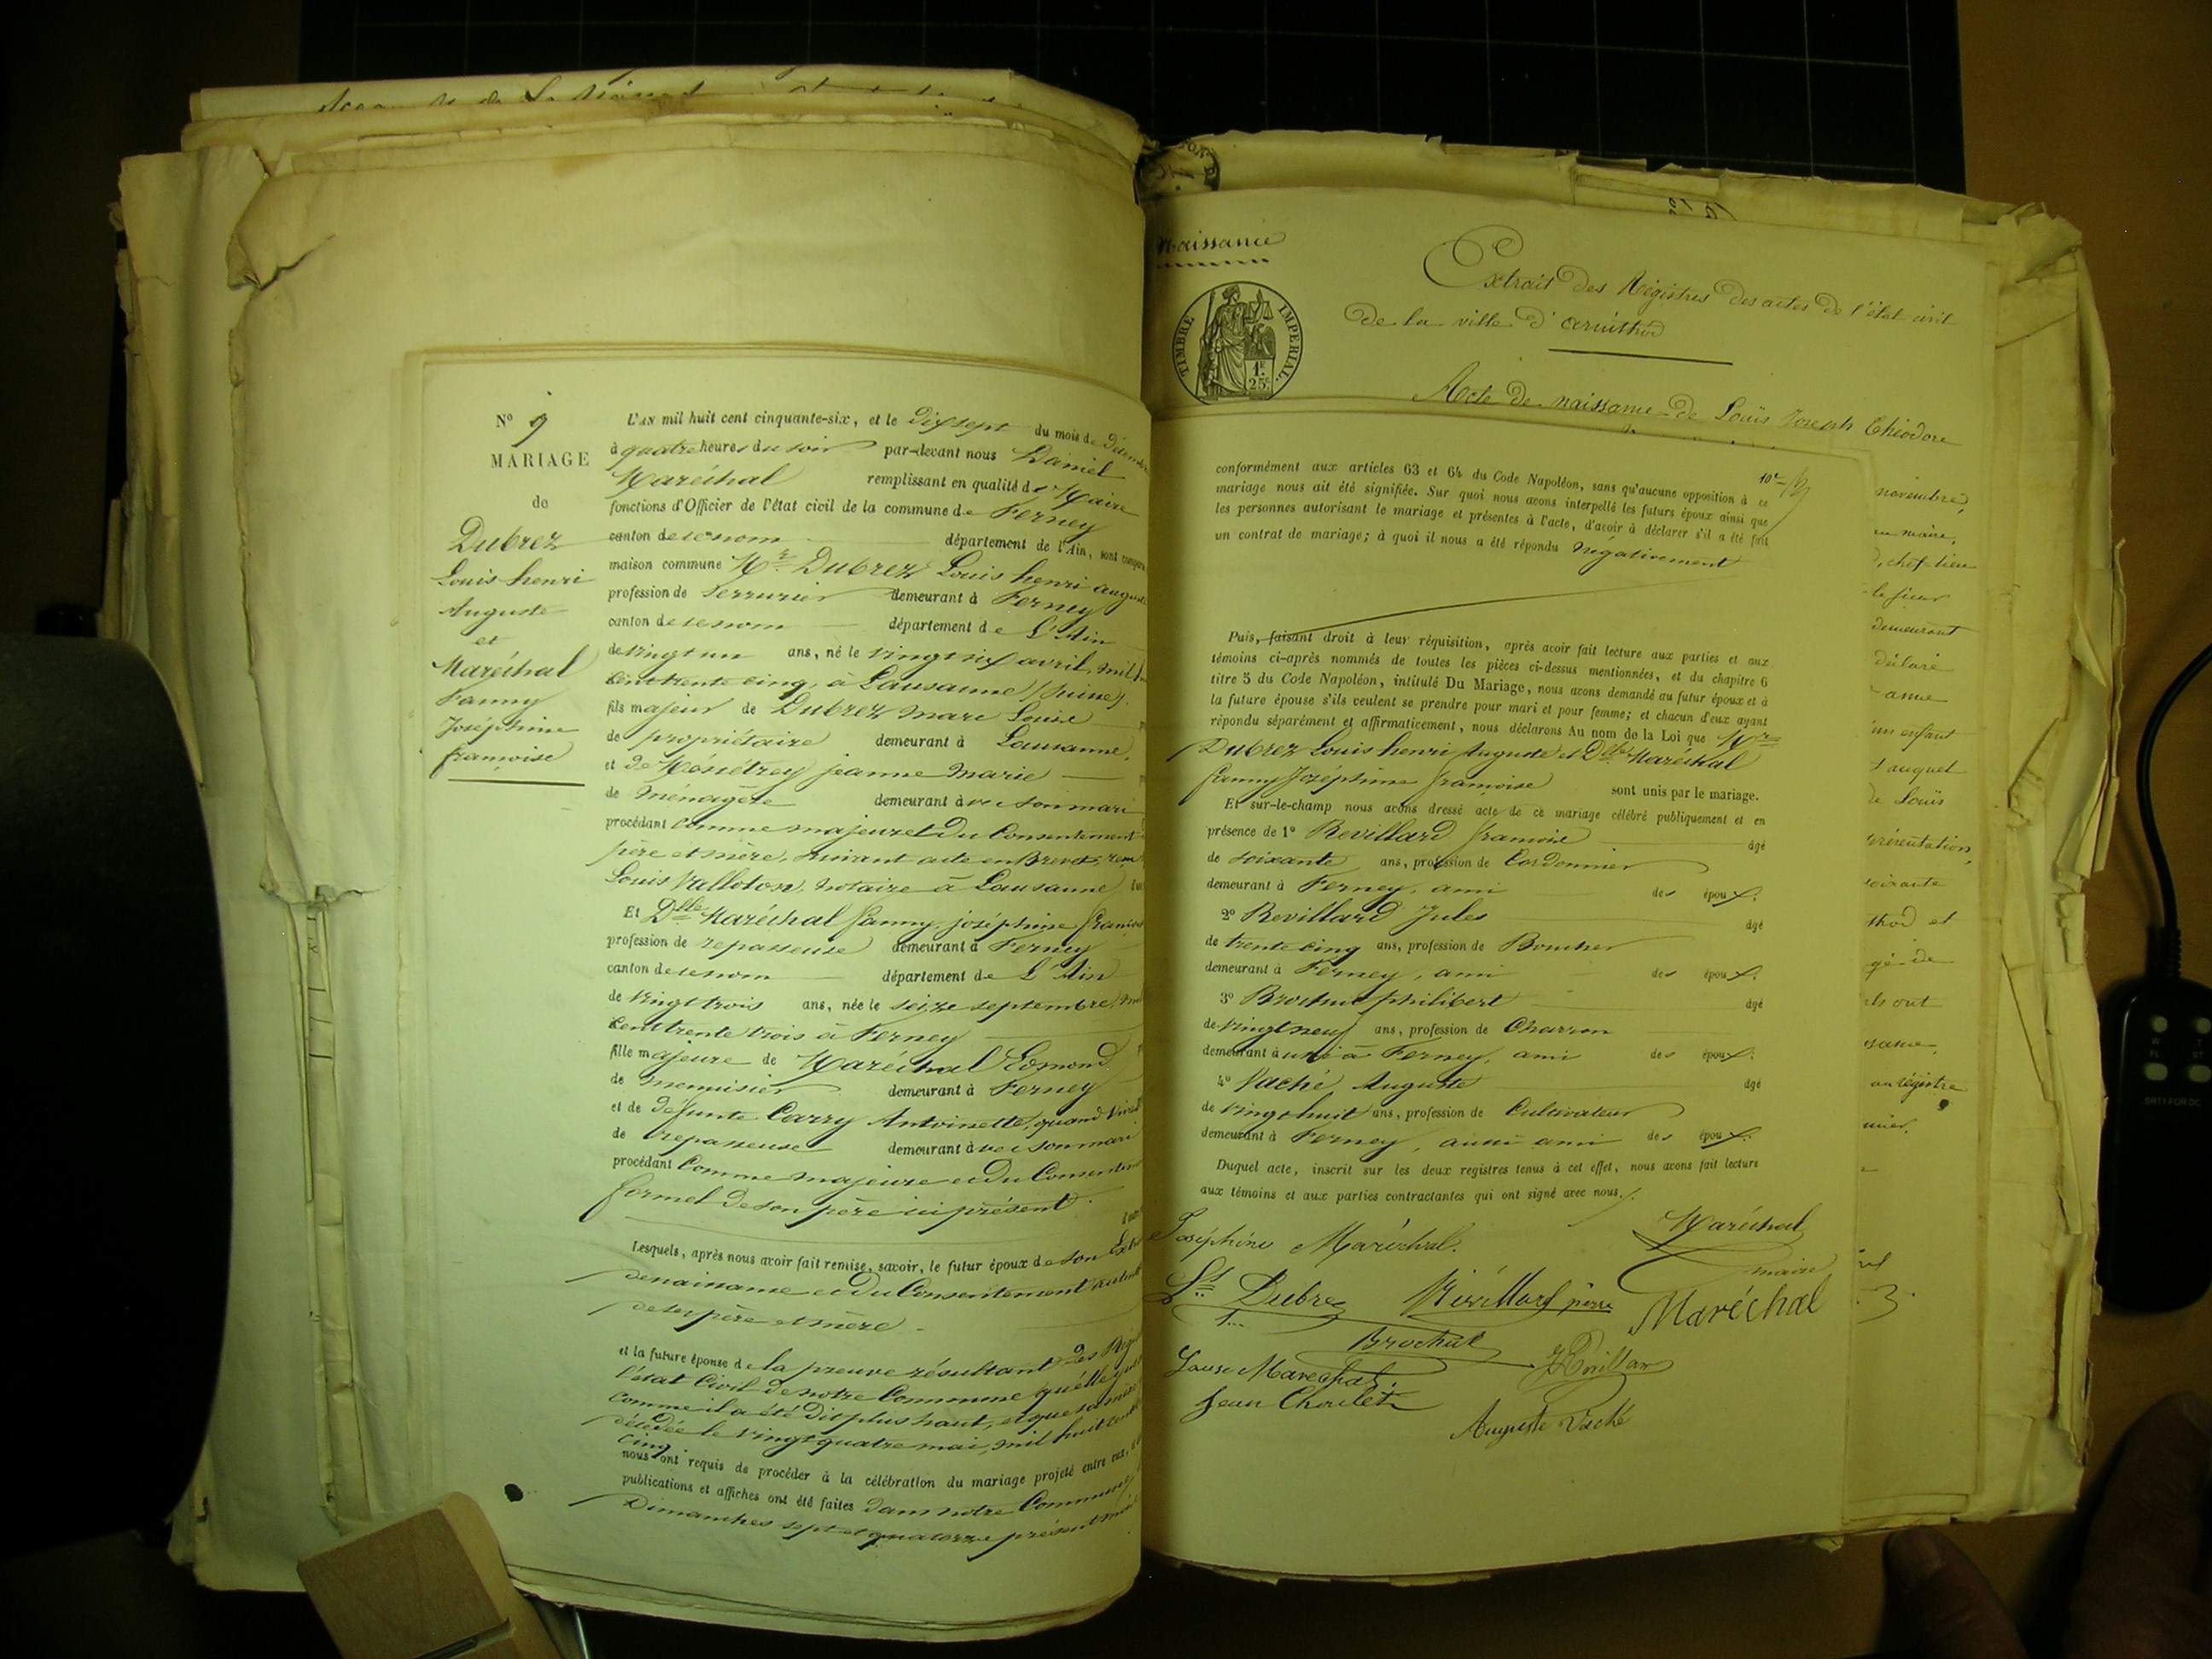 Nº 9
MARIAGE
de
Dubrez
Louis henri
Auguste
et
Maréchal
Fanny
Joséphine
françoise
L'AN mil huit cent cinquante-six, et le Dixsept du mois de Décembre
à quatre heures du soir par-devant nous Daniel
Maréchal remplissant en qualité de Maire
fonctions d'Officier de l'état civil de la commune de Ferney
canton de ce nom département de l'Ain, sont
maison commune Mr Dubrez Louis henri auguste
profession de Serrurier demeurant à Ferney
canton de ce nom département de L'Ain
de vingt un ans, né le vingt six avril, mil
cent trente cinq, à Lausanne (Suisse).
fils majeur de Dubrez Marc Louis
de propriétaire demeurant à Lausanne,
et de Ménétrey jeanne Marie
de Ménagère demeurant avec son mari
procédant comme majeur et du Consentement
père et mère, suivant acte en Brevet,
Louis Valloton, notaire à Lausanne
Et Dlle Maréchal fanny joséphine
profession de repasseuse demeurant à Ferney
canton de ce nom département de L'Ain
de vingt trois ans, née le seize septembre,
cent trente trois à Ferney
fille majeure de Maréchal Edmond
de menuisier demeurant à Ferney
et de défunte Carry Antoinette, quand
de repasseuse demeurant avec son mari
procédant Comme majeure et du
formel de son père ici présent.
Lesquels, après nous avoir fait remise, savoir, le futur époux de son
de naissance et du Consentement
de ses père et mère
et la future épouse de la preuve résultant des
l'état Civil de notre Commune qu'elle
comme il a été Dit plus haut, et que sa mère
décédée le vingt quatre mai, mil huit cent
cinq
nous ont requis de procéder à la célébration du mariage projeté entre eux,
publications et affiches ont été faites dans notre Commune
Dimanches sept et quatorze présent mois
Naissance
TIMBRE IMPERIAL.
1F.
25c.
Extrait des Régistres des actes de l'état civil
de la ville d'arinthod
Acte de naissance de Louis Joseph Théodore
conformément aux articles 63 et 64 du Code Napoléon, sans qu'aucune opposition à ce
mariage nous ait été signifiée. Sur quoi nous avons interpellé les futurs époux ainsi que
les personnes autorisant le mariage et présentes à l'acte, d'avoir à déclarer s'il a été fait
un contrat de mariage; à quoi il nous a été répondu négativement
Puis, faisant droit à leur réquisition, après avoir fait lecture aux parties et aux
témoins ci-après nommés de toutes les pièces ci-dessus mentionnées, et du chapitre 6
titre 5 du Code Napoléon, intitulé Du Mariage, nous avons demandé au futur époux et à
la future épouse s'ils veulent se prendre pour mari et pour femme; et chacun d'eux ayant
répondu séparément et affirmativement, nous déclarons Au nom de la Loi que Mr
Dubrez Louis henri Auguste et Dlle Maréchal
fanny Joséphine françoise sont unis par le mariage.
Et sur-le-champ nous avons dressé acte de ce mariage célébré publiquement et en
présence de 1º Revillard françois âgé
de soixante ans, profession de Cordonnier
demeurant à Ferney, ami des époux.
2º Revillard Jules âgé
de trente cinq ans, profession de Boucher
demeurant à Ferney, ami des époux.
3º Brochut philibert âgé
de vingt neuf ans, profession de Charron
demeurant à Ferney, ami des époux.
4º Vaché Auguste âgé
de vingt huit ans, profession de Cultivateur
demeurant à Ferney, aussi ami des époux.
Duquel acte, inscrit sur les deux registres tenus à cet effet, nous avons fait lecture
aux témoins et aux parties contractantes qui ont signé avec nous.
Joséphine Maréchal. Maréchal
maire
Ls Dubrez Révillard pierre Maréchal
Brochut
Louise Maréchal
Jean Choulet
Auguste Vaché
novembre,
maire,
chef lieu
le sieur
demeurant
déclaré
un enfant
auquel
de Louis
présentation,
soixante
et
gé de
ont
au régistre